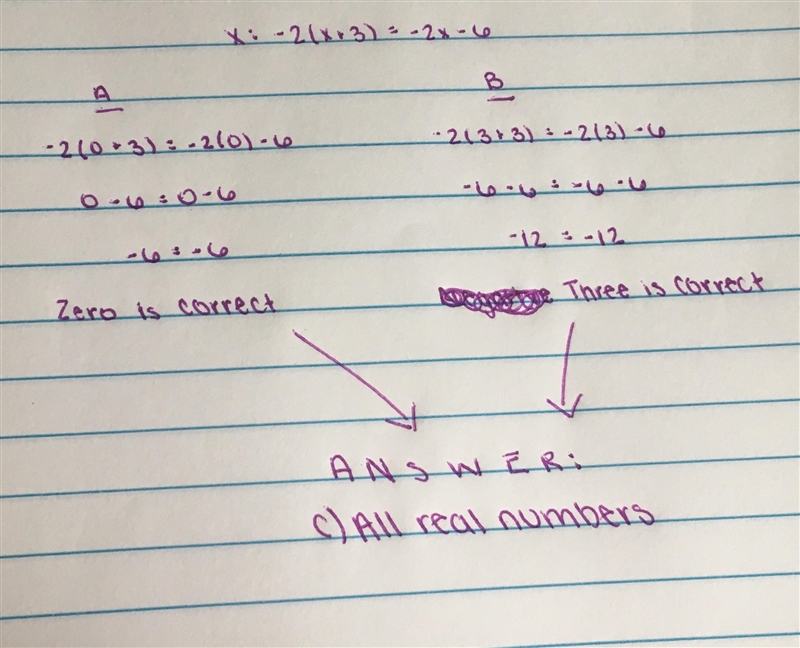 x: -2(x+3) = -2x-6
A
-2(0+3) = -2(0)-6
0-6=0-6
-6=-6
Zero is correct
B
-2(3+3) = -2(3)-6
-6-6 = -6-6
-12 = -12
Three is correct
ANSWER:
c) All real numbers